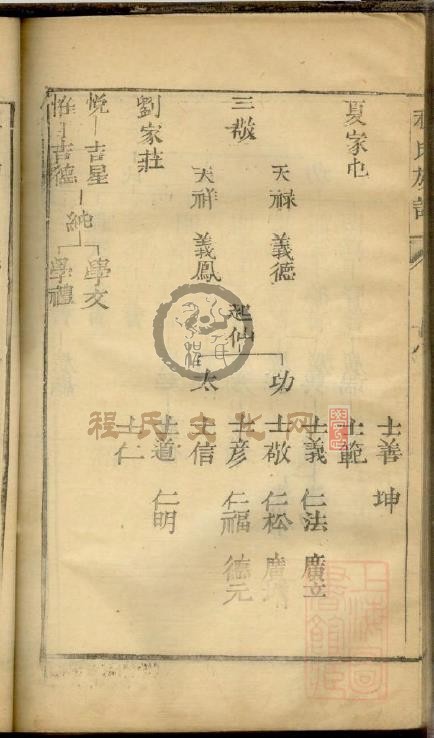 程氏族譜
士善 坤
夏家屯
士範
士義 仁法 廣立
天禄 義德
功
士敬 仁松 廣
三敬
起仙
士彥 仁福 德元
天祥 義鳳
太
士信
劉家莊
士道 仁明
士仁
悅 吉星
純
學文
吉德
學禮
程氏文化网
上海圖書館藏